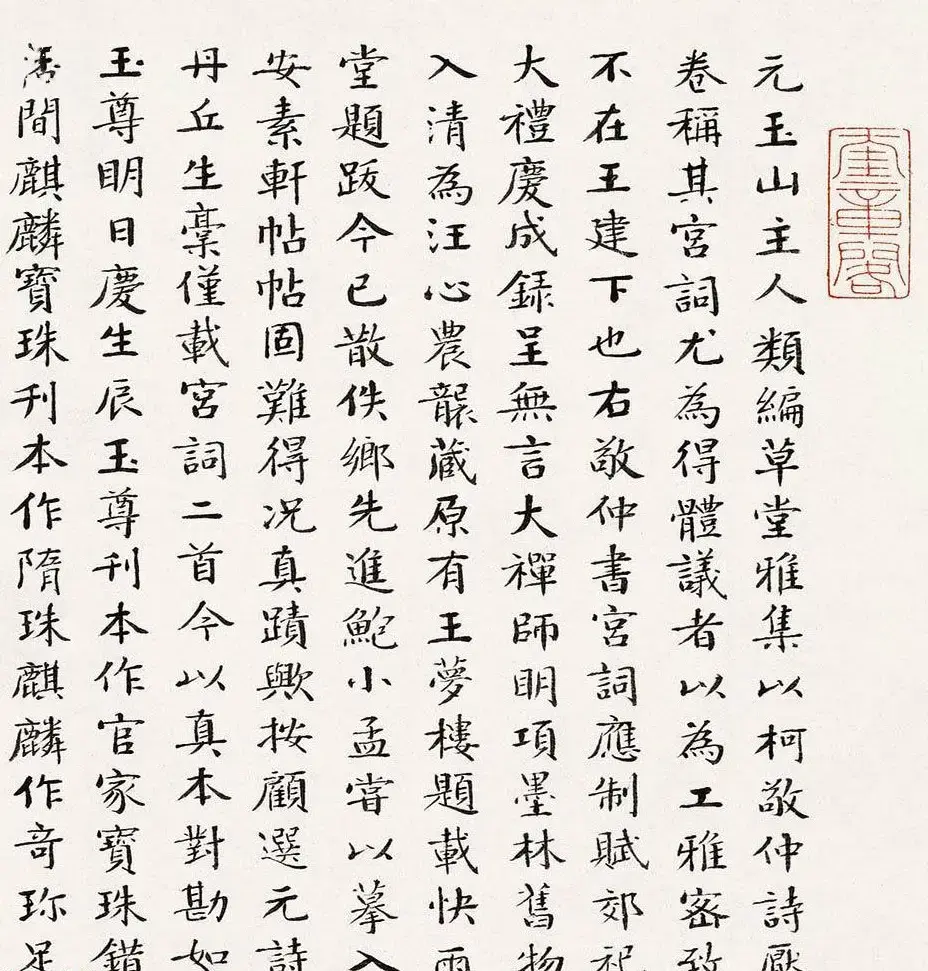 奎章閣
元玉山主人類編草堂雅集以柯敬仲詩壓
卷稱其宮詞尤為得體議者以為工雅密致
不在王建下也右敬仲書宮詞應制賦郊祀
大禮慶成錄呈無言大禪師明項墨林舊物
入清為汪心農襲藏原有王夢樓題載快雨
堂題跋今已散佚鄉先進鮑小孟嘗以摹入
安素軒帖帖固難得況真蹟歟按顧選元詩
丹丘生稾僅載宮詞二首今以真本對勘如
玉尊明日慶生辰玉尊刊本作官家寶珠錯
落間麒麟寶珠刊本作隋珠麒麟作奇珎足